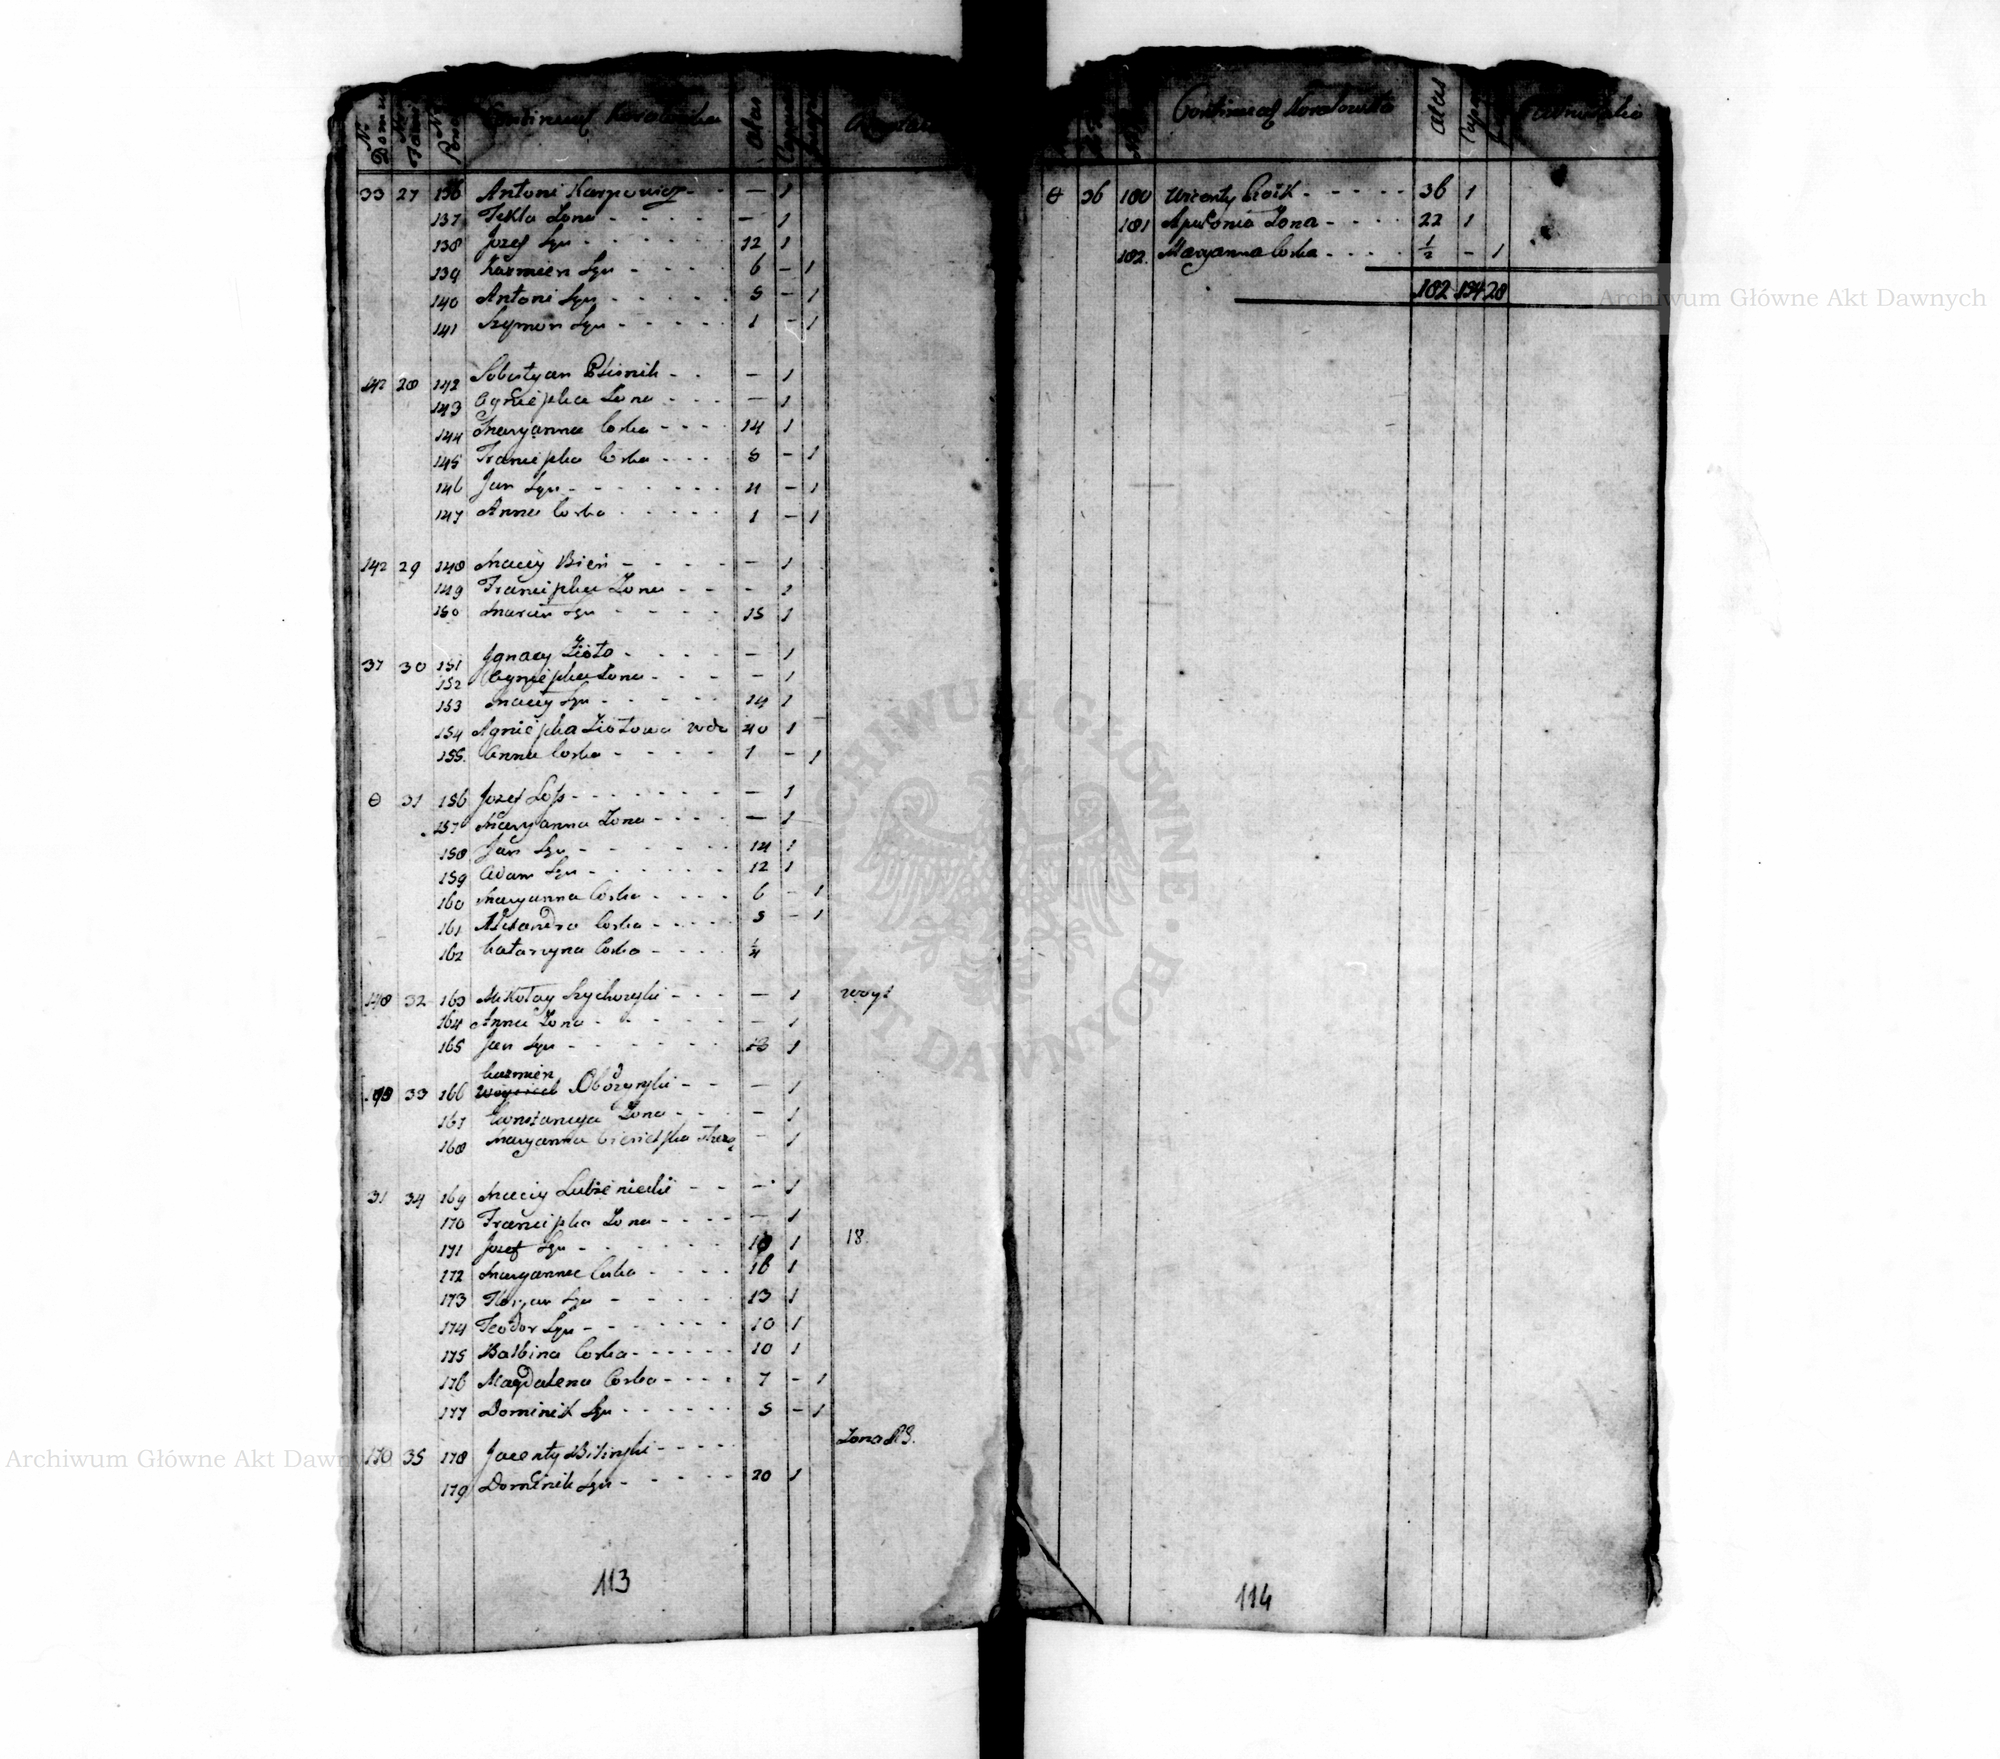 Nr Domu Nr Fami Nr Perso Continuat Korolowka Ætas Capax
33 27 136 Antoni Karpowicz - - — 1
137 Tekla Zona - - - - — 1
138 Jozef Syn - - - - - 12 1
139 Kazmierz Syn - - - - 6 - 1
140 Antoni Syn - - - - - 5 - 1
141 Szymon Syn - - - - 1 - 1
142 28 142 Sobestyan - - — 1
143 Agnieszka Zona - - - — 1
144 Maryanna Corka - - - - 14 1
145 Franciszka Corka - - - - 5 - 1
146 Jan Syn - - - - - - 4 - 1
147 Anna Corka - - - - - 1 - 1
142 29 148 Maciej Bień - - - - — 1
149 Franciszka Zona - - - 1
150 Marcin Syn - - - - 15 1
37 30 151 Jgnacy Zioło - - - - — 1
152 Agnieszka Zona - - - — 1
153 Maciey Syn - - - - - 14 1
154 Agnieszka Ziołowa wdo 40 1
155. Anna Corka - - - - - 1 - 1
θ 31 156 Jozef Loss - - - - - - — 1
157 Maryanna Zona - - - - — 1
158 Jan Syn - - - - - - 14 1
159 Adam Syn - - - - - - 12 1
160 Maryanna Corka - - - - 6 - 1
161 Alexandra Corka - - - - 3 - 1
162 Katarzyna Corka - - - - ¼
148 32 163 Mikołay Szychowski - - - — 1 woyt
164 Anna Zona - - - - - — 1
165 Jan Syn - - - - - - 13 1
Kazmierz
33 166 Woyciech - - — 1
167 Konstancya Zona - - - — 1
168 Maryanna — 1
31 34 169 Maciey - - — 1
170 Franciszka Zona - - - - — 1
171 Jozef Syn - - - - - - 18 1 18
172 Maryanna Corka - - - - 16 1
173 Floryan Syn - - - - - 13 1
174 Teodor Syn - - - - - - 10 1
175 Balbina Corka - - - - - 10 1
176 Magdalena Corka - - - - 7 - 1
177 Dominik Syn - - - - - - 5 - 1
170 35 178 Jacenty Bilinski - - - - Zona
179 Dominik Syn - - - - - 20 1
113
Continuat Korolowka Ætas
θ 36 180 Wicenty - - - - 36 1
181 Apolonia Zona - - - - 22 1
182. Maryanna Corka - - - - ½ - 1
182 154 28
114
Archiwum Główne Akt Dawnych
Archiwum Główne Akt Dawnych
ARCHIWUM GŁÓWNE AKT DAWNYCH